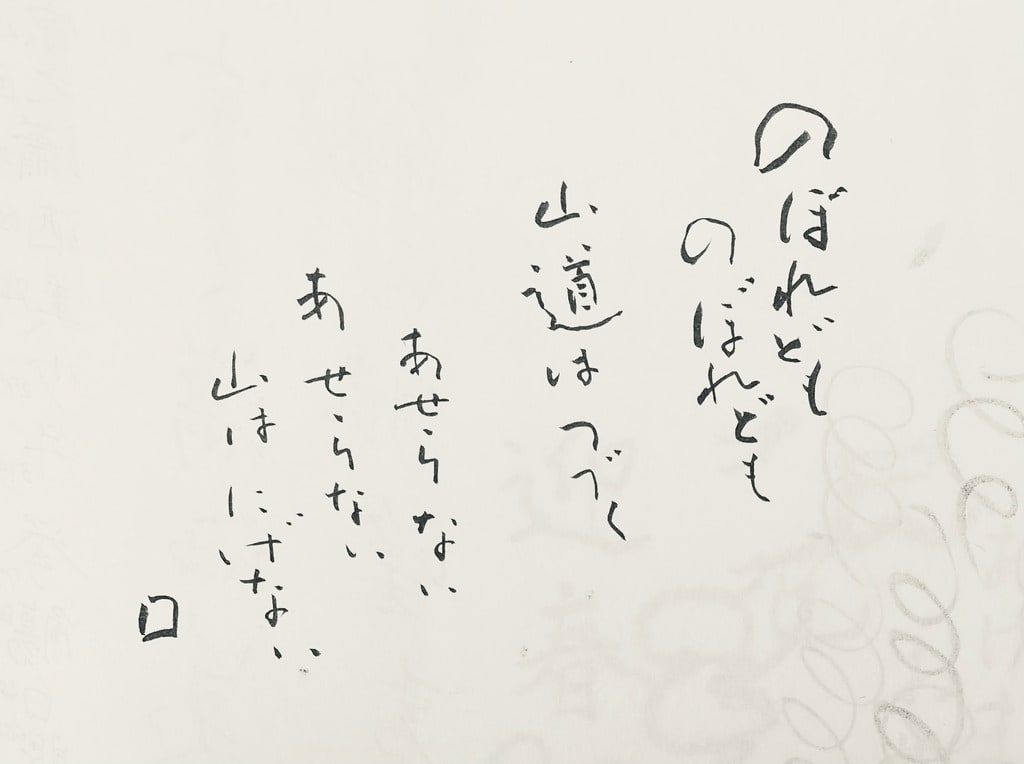 のぼれども
のぼれども
山道はつづく
あせらない
あせらない
山はにげない